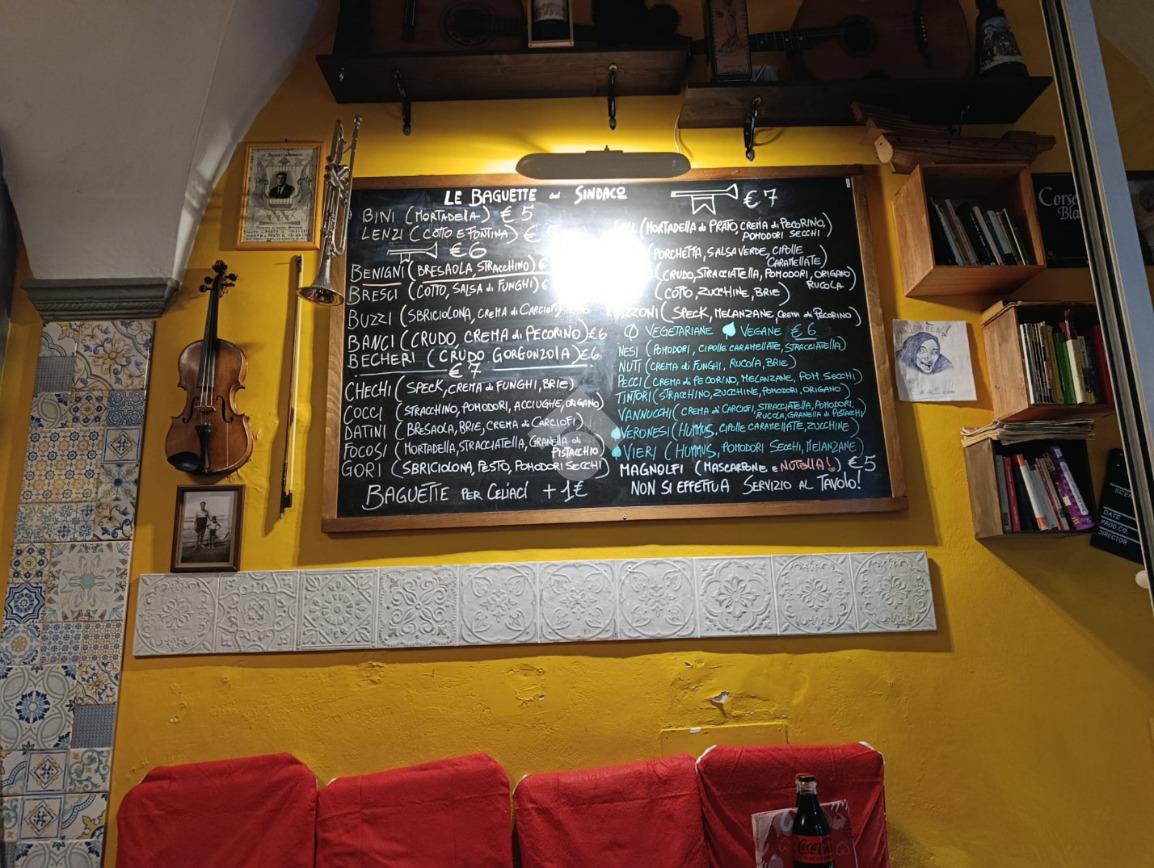 LE BAGUETTE del SINDACO
BINI (MORTADELLA) € 5
LENZI (COTTO E FONTINA) € 5
€ 6
BENIGNI (BRESAOLA, STRACCHINO)
BRESCI (COTTO, SALSA di FUNGHI) €
BUZZI (SBRICIOLONA, CREMA di CARCIOFI
BANCI (CRUDO, CREMA di PECORINO) €6
BECHERI (CRUDO GORGONZOLA) €6
€ 7
CHECHI (SPECK, CREMA di FUNGHI, BRIE)
COCCI (STRACCHINO, POMODORI, ACCIUGHE, ORIGANO)
DATINI (BRESAOLA, BRIE, CREMA di CARCIOFI)
FOCOSI (MORTADELLA, STRACCIATELLA, GRANELLA di
PISTACCHIO)
GORI (SBRICIOLONA, PESTO, POMODORI SECCHI)
BAGUETTE PER CELIACI +1€
€ 7
(MORTADELLA di PRATO, CREMA di PECORINO,
POMODORI SECCHI)
PORCHETTA, SALSA VERDE, CIPOLLE
CARAMELLATE)
(CRUDO, STRACCIATELLA, POMODORI, ORIGANO
RUCOLA)
(COTTO, ZUCCHINE, BRIE)
(SPECK, MELANZANE, CREMA di PECORINO)
VEGETARIANE VEGANE € 6
NESI (POMODORI, CIPOLLE CARAMELLATE, STRACCIATELLA)
NUTI (CREMA di FUNGHI, RUCOLA, BRIE)
PECCI (CREMA di PECORINO, MELANZANE, POM. SECCHI)
TINTORI (STRACCHINO, ZUCCHINE, POMODORI, ORIGANO)
VANNUCCHI (CREMA di CARCIOFI, STRACCIATELLA, POMODORI,
RUCOLA, GRANELLA di PISTACCHI)
VERONESI (HUMMUS, CIPOLLE CARAMELLATE, ZUCCHINE)
VIERI (HUMMUS, POMODORI SECCHI, MELANZANE)
MAGNOLFI (MASCARPONE e NUTELLA!) €5
NON SI EFFETTUA SERVIZIO AL TAVOLO!
DATE
PROD.CO.
DIRECTOR